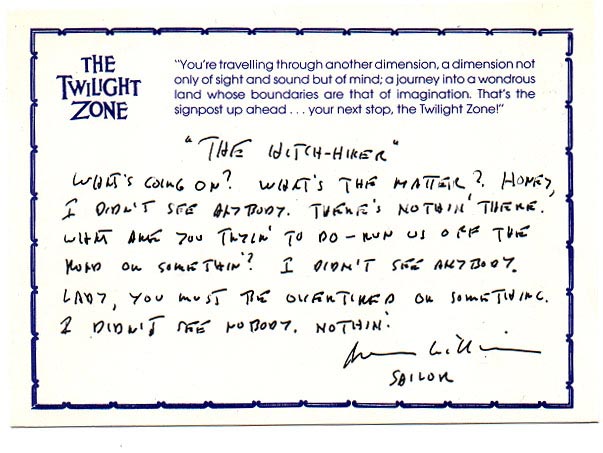 THE
TWILIGHT
ZONE
"You're travelling through another dimension, a dimension not
only of sight and sound but of mind; a journey into a wondrous
land whose boundaries are that of imagination. That's the
signpost up ahead . . . your next stop, the Twilight Zone!"
"THE HITCH-HIKER"
WHAT'S GOING ON? WHAT'S THE MATTER? HONEY,
I DIDN'T SEE ANYBODY. THERE'S NOTHIN' THERE.
WHAT ARE YOU TRYIN' TO DO – RUN US OFF THE
ROAD OR SOMETHIN'? I DIDN'T SEE ANYBODY.
LADY, YOU MUST BE OVERTIRED OR SOMETHING.
I DIDN'T SEE NOBODY. NOTHIN'.
SAILOR